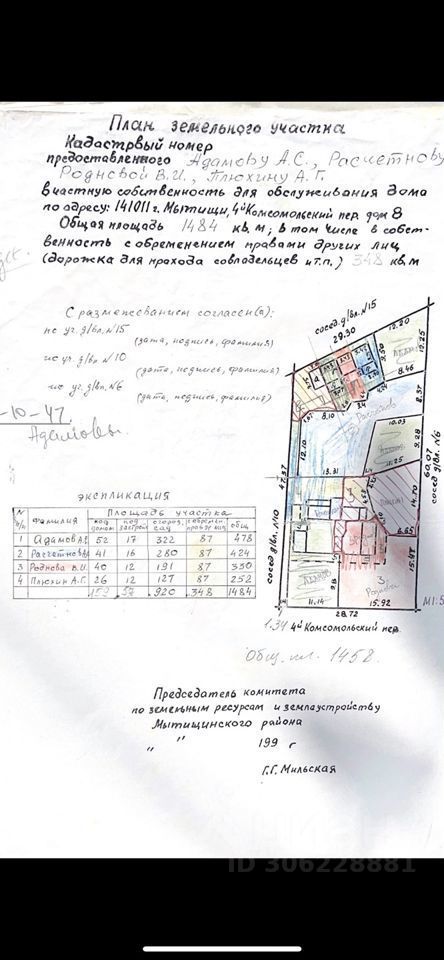 План земельного участка
Кадастрвый номер
предоставленного Адамову А.С., Расчетнову
Родновой В.И., Плюхину А.Г.
в частную собственность для обслуживания дома
по адресу: 141011 г. Мытищи, 4й Комсомольский пер. дом 8
Общая площадь 1484 кв.м; в том числе в собст-
венность с обременением правами других лиц
(дорожка для прохода совладельцев и т.п.) 348 кв.м
С размежеванием согласен(а):
по уч. д/вл. N15
(дата, подпись, фамилия)
по уч. д/вл. N10
(дата, подпись, фамилия)
по уч. д/вл. N6
(дата, подпись, фамилия)
-10-47.
Адамовы
сосед д/вл. N15
29.30
12.20
12.25
9.50
8.46
8.37
8.10
10.03
9.28
12.10
11.25
13.31
47.37
60.07
сосед д/вл. N6
14.70
6.65
15.47
сосед д/вл. N10
9.8
3.
Роднова
11.14
15.92
28.72
М1:5
1.34
4й Комсомольский пер.
Общ. пл. 1458.
экспликация
N п/п Фамилия Площадь участка
под домом под застрой огород, сад с обремен. прав.др.лиц общ.
1 Адамов А.С 52 17 322 87 478
2 Расчетнов 41 16 280 87 424
3 Роднова В.И. 40 12 191 87 330
4 Плюхин А.Г. 26 12 127 87 252
159 57 920 348 1484
Председатель комитета
по земельным ресурсам и землеустройству
Мытищинского района
" " 199 г
Г.Г. Мильская
ID 306228881